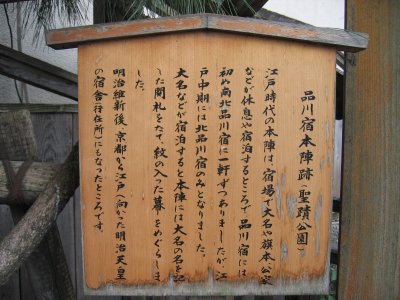 品川宿本陣跡(聖蹟公園)
江戸時代の本陣は、宿場で大名や旗本・公家
などが休息や宿泊するところで、品川宿には
初め南北品川宿に一軒ずつありましたが、江
戸中期には北品川宿のみとなりました。
大名などが宿泊すると本陣には大名の名を記
した関札をたて、紋の入った幕をめぐらしま
した。
明治維新後、京都から江戸へ向かった明治天皇
の宿舎(行在所)になったところです。